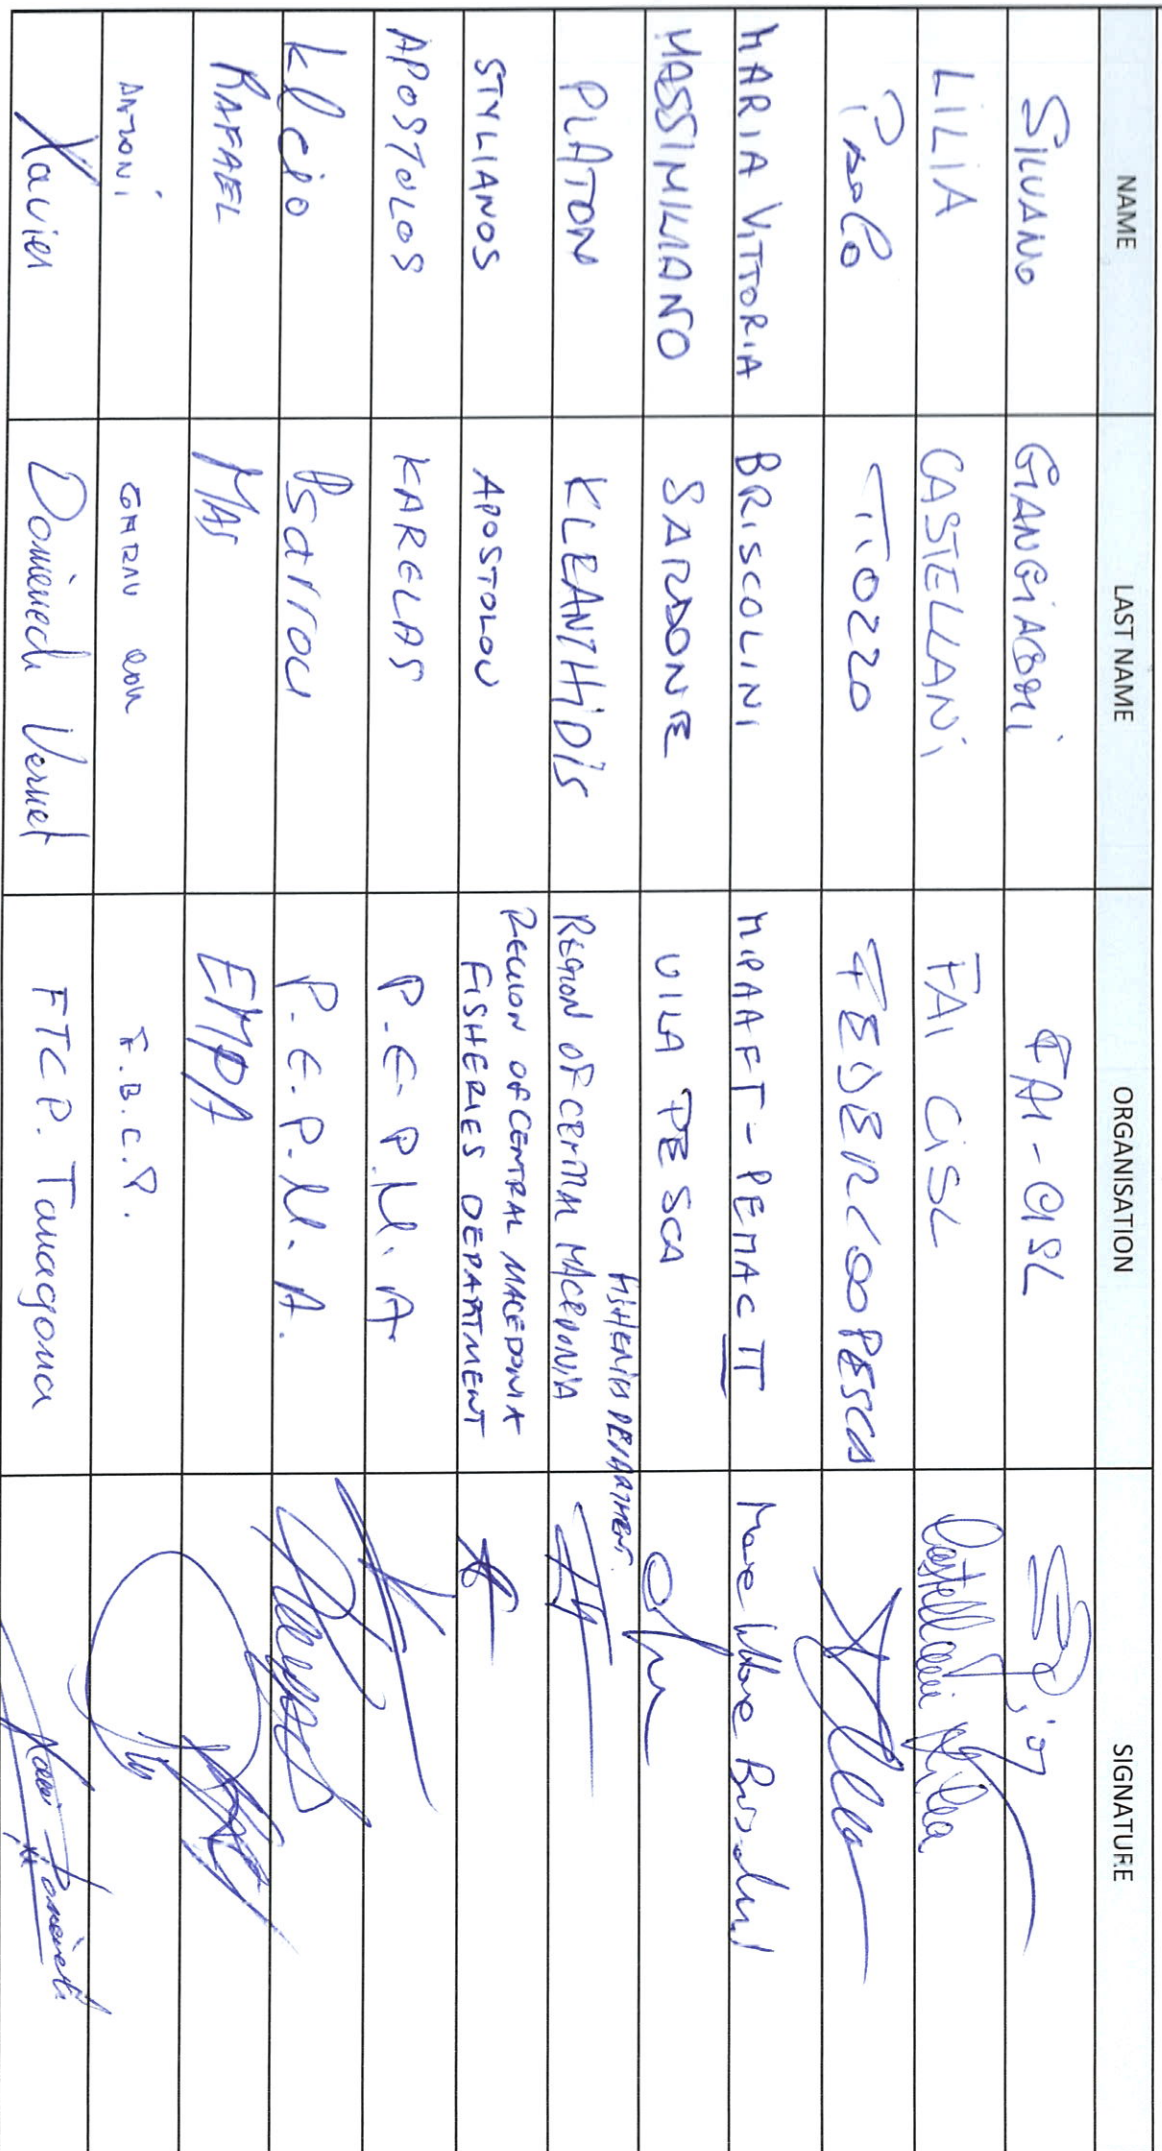 NAME LAST NAME ORGANISATION SIGNATURE
SILVANO GIANGIACOMI FAI-CISL
LILIA CASTELLANI FAI CISL Castellani Lilia
Paolo TIOZZO FEDERCOOPESCA
MARIA VITTORIA BRISCOLINI MIPAAFT - PEMAC II
MASSIMILIANO SARDONE UILA PESCA
FISHERIES DEPARTMENT.
PLATON KLEANTHIDIS REGION OF CENTRAL MACEDONIA
STYLIANOS APOSTOLOU REGION OF CENTRAL MACEDONIA
FISHERIES DEPARTMENT
APOSTOLOS KARELAS P.E.P.M.A.
Klio Psarrou P.E.P.M.A.
RAFAEL MAS EMPA
ANTONI GARAU F.B.C.P.
Xavier Domènech Vernet FTCP. Tarragona